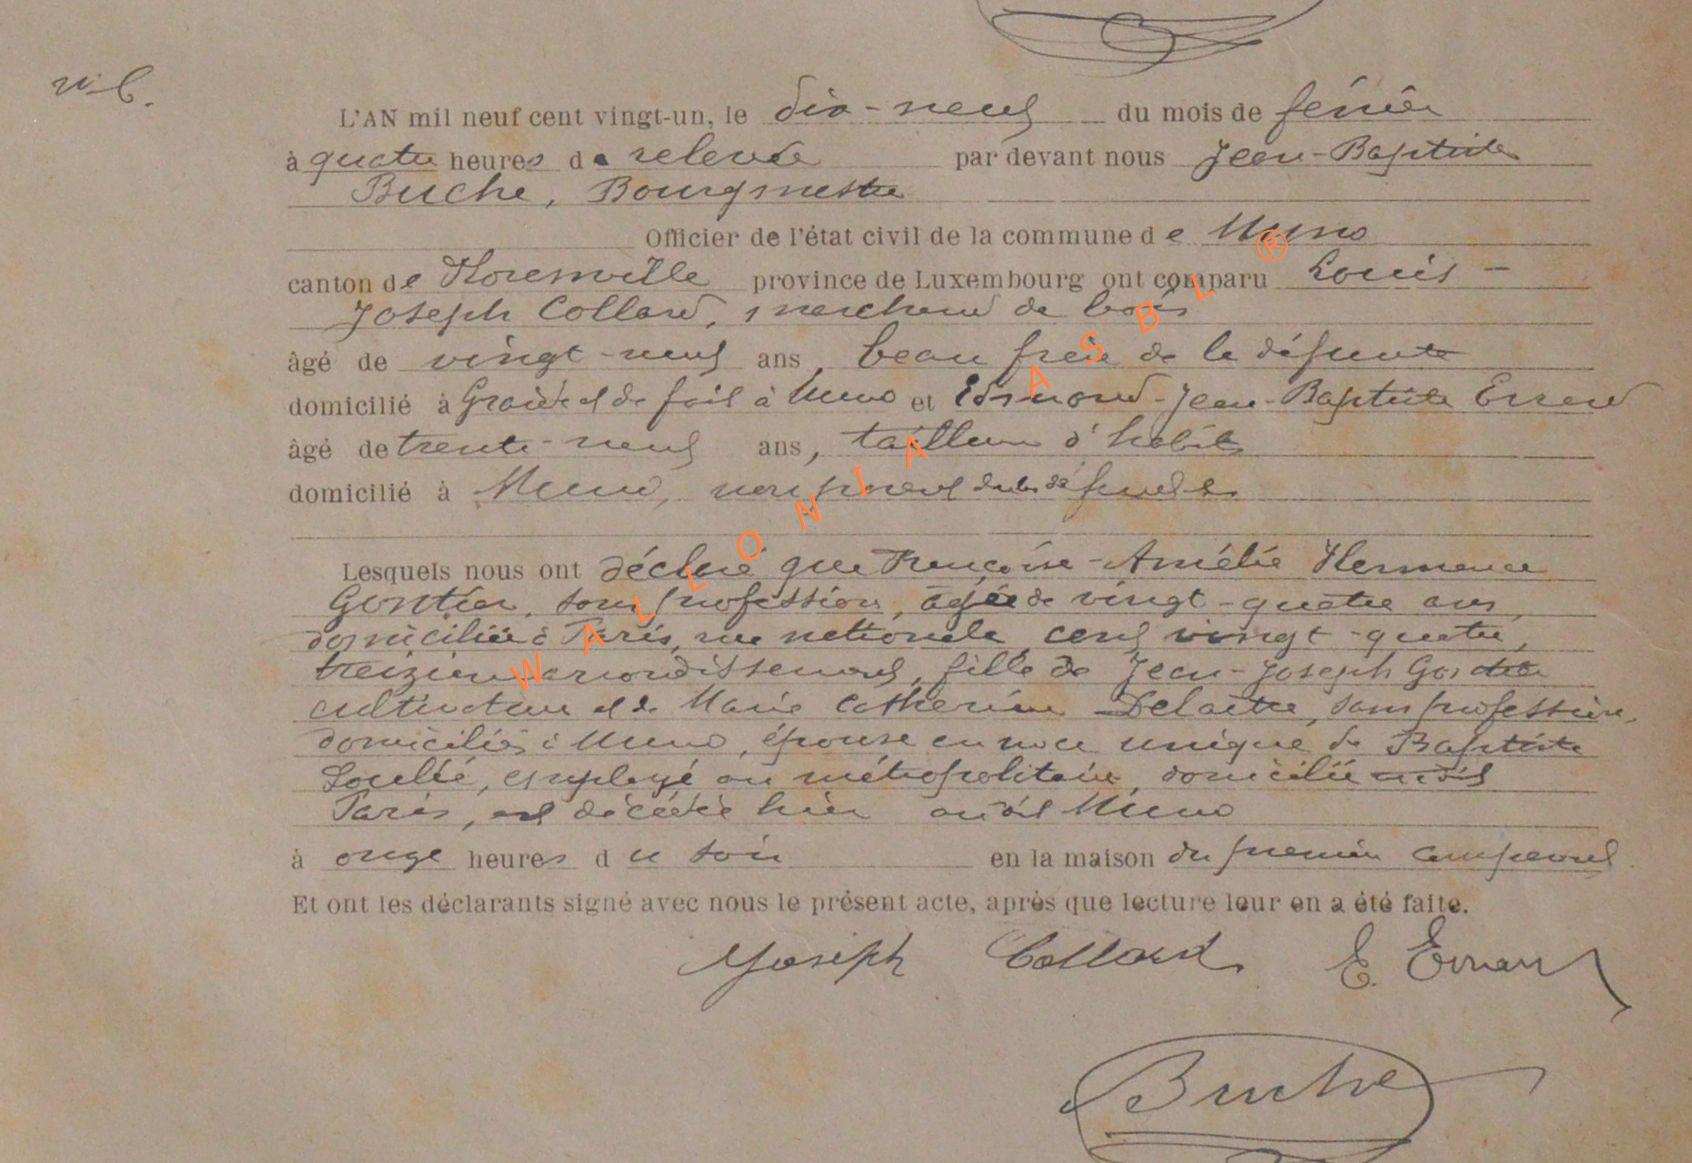 N° 6.
L'AN mil neuf cent vingt-un, le dix-neuf du mois de février
à quatre heures de relevée par devant nous Jean-Baptiste
Buche, Bourgmestre
Officier de l'état civil de la commune de Muno
canton de Florenville province de Luxembourg ont comparu Louis-
Joseph Collard, marchand de bois
âgé de vingt-neuf ans, beau frère de la défunte
domicilié à et de fait à Muno et Edmond-Jean-Baptiste
âgé de trente-neuf ans, tailleur d'habits
domicilié à Muno, non parent de la défunte
Lesquels nous ont déclaré que Françoise-Amélie Hermance
Gontier, sans profession, âgée de vingt-quatre ans
domiciliée à Paris, rue nationale, cent vingt-quatre,
treizième arrondissement, fille de Jean-Joseph Gontier
cultivateur et de Marie Catherine Delaitre, sans profession,
domiciliés à Muno, épouse en noce unique de Baptiste
employé au métropolitain, domicilié au dit
Paris, est décédée hier au dit Muno
à onze heures du soir en la maison du premier comparant.
Et ont les déclarants signé avec nous le présent acte, après que lecture leur en a été faite.
Joseph Collard E.
Buche
WALLONIA ASBL ®